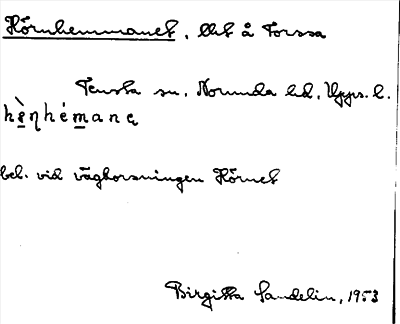 Hörnhemmanet, Ött å Forssa
Tensta sn, Norunda hd, Upps. l.
hè̱ηhém̱anę
bel. vid vägkorsningen Hörnet
Birgitta Sandelin, 1953